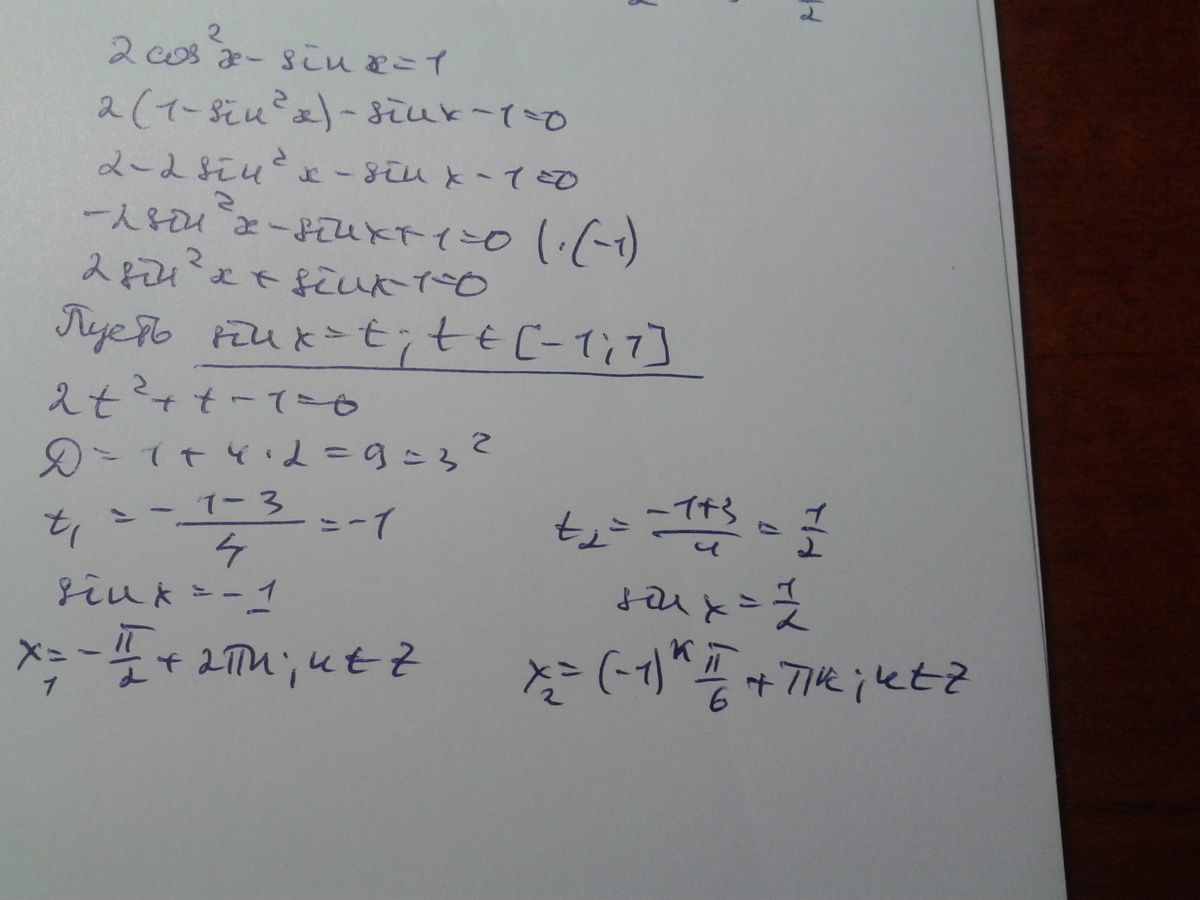 2 2
2cos²x - sin x = 1
2(1 - sin²x) - sin x - 1 = 0
2 - 2 sin²x - sin x - 1 = 0
-2 sin²x - sin x + 1 = 0 (·(-1)
2 sin²x + sin x - 1 = 0
Пусть sin x = t; t ∈ [-1; 1]
2t² + t - 1 = 0
D = 1 + 4·2 = 9 = 3²
t₁ = -\frac{1-3}{4} = -1 t₂ = \frac{-1+3}{4} = \frac{1}{2}
sin x = -1 sin x = \frac{1}{2}
x₁ = -\frac{π}{2} + 2πk; k ∈ Z x₂ = (-1)ᵏ \frac{π}{6} + πk; k ∈ Z